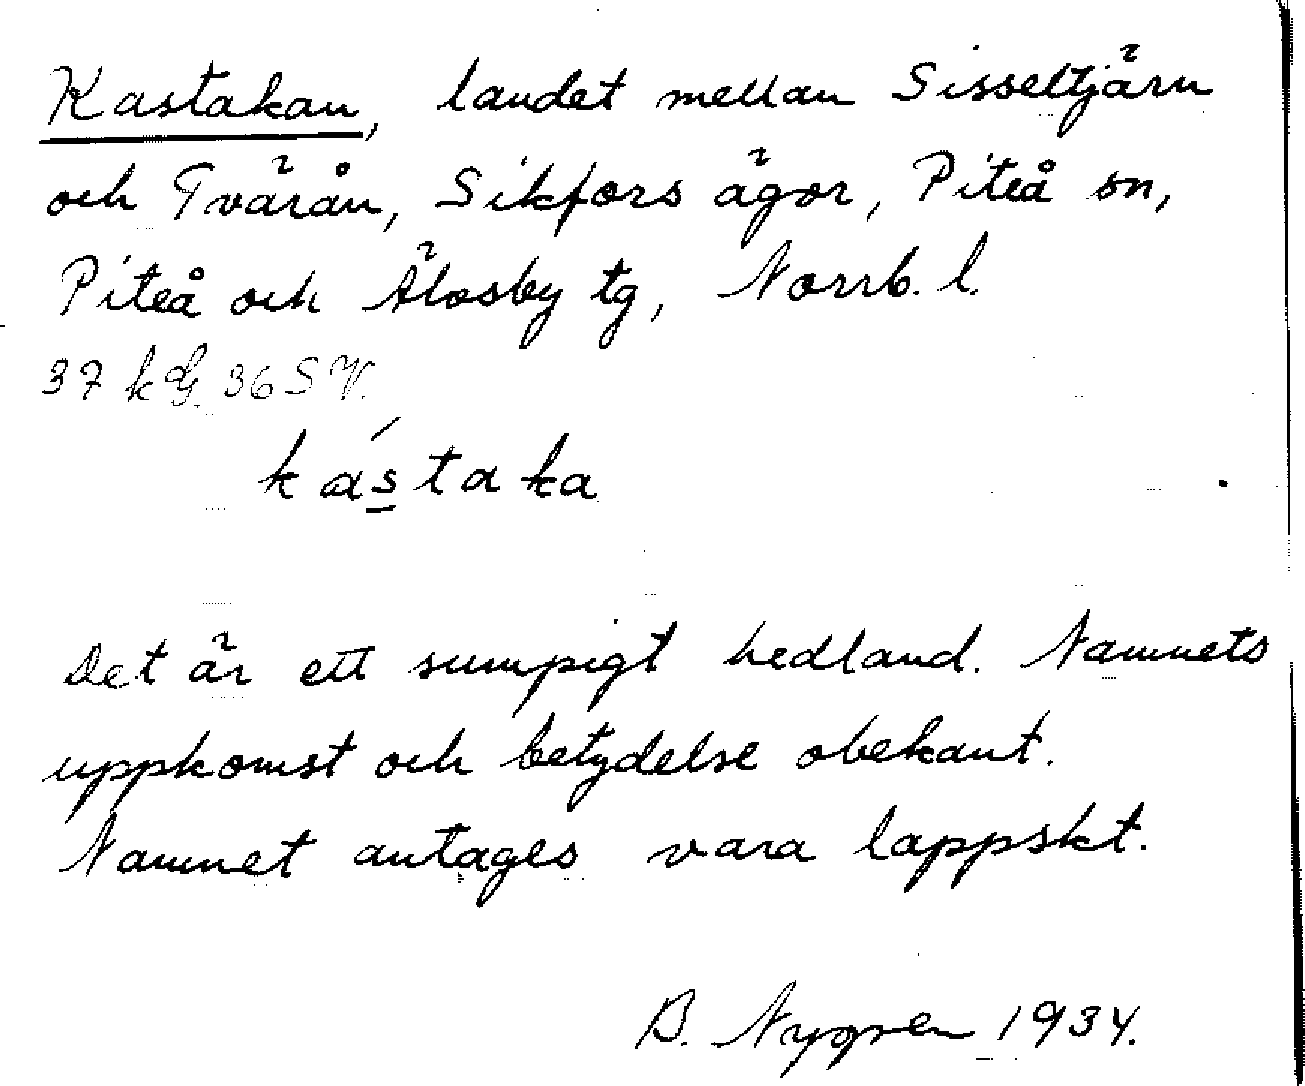 Kastakan, landet mellan Sisseltjärn
och Tvärån, Sikfors ägor, Piteå sn,
Piteå och Älvsby tg, Norrb. l.
37 k G. 36 S V.
kástaka
Det är ett sumpigt hedland. Namnets
uppkomst och betydelse obekant.
Namnet antages vara lappskt.
B. Nygren 1934.